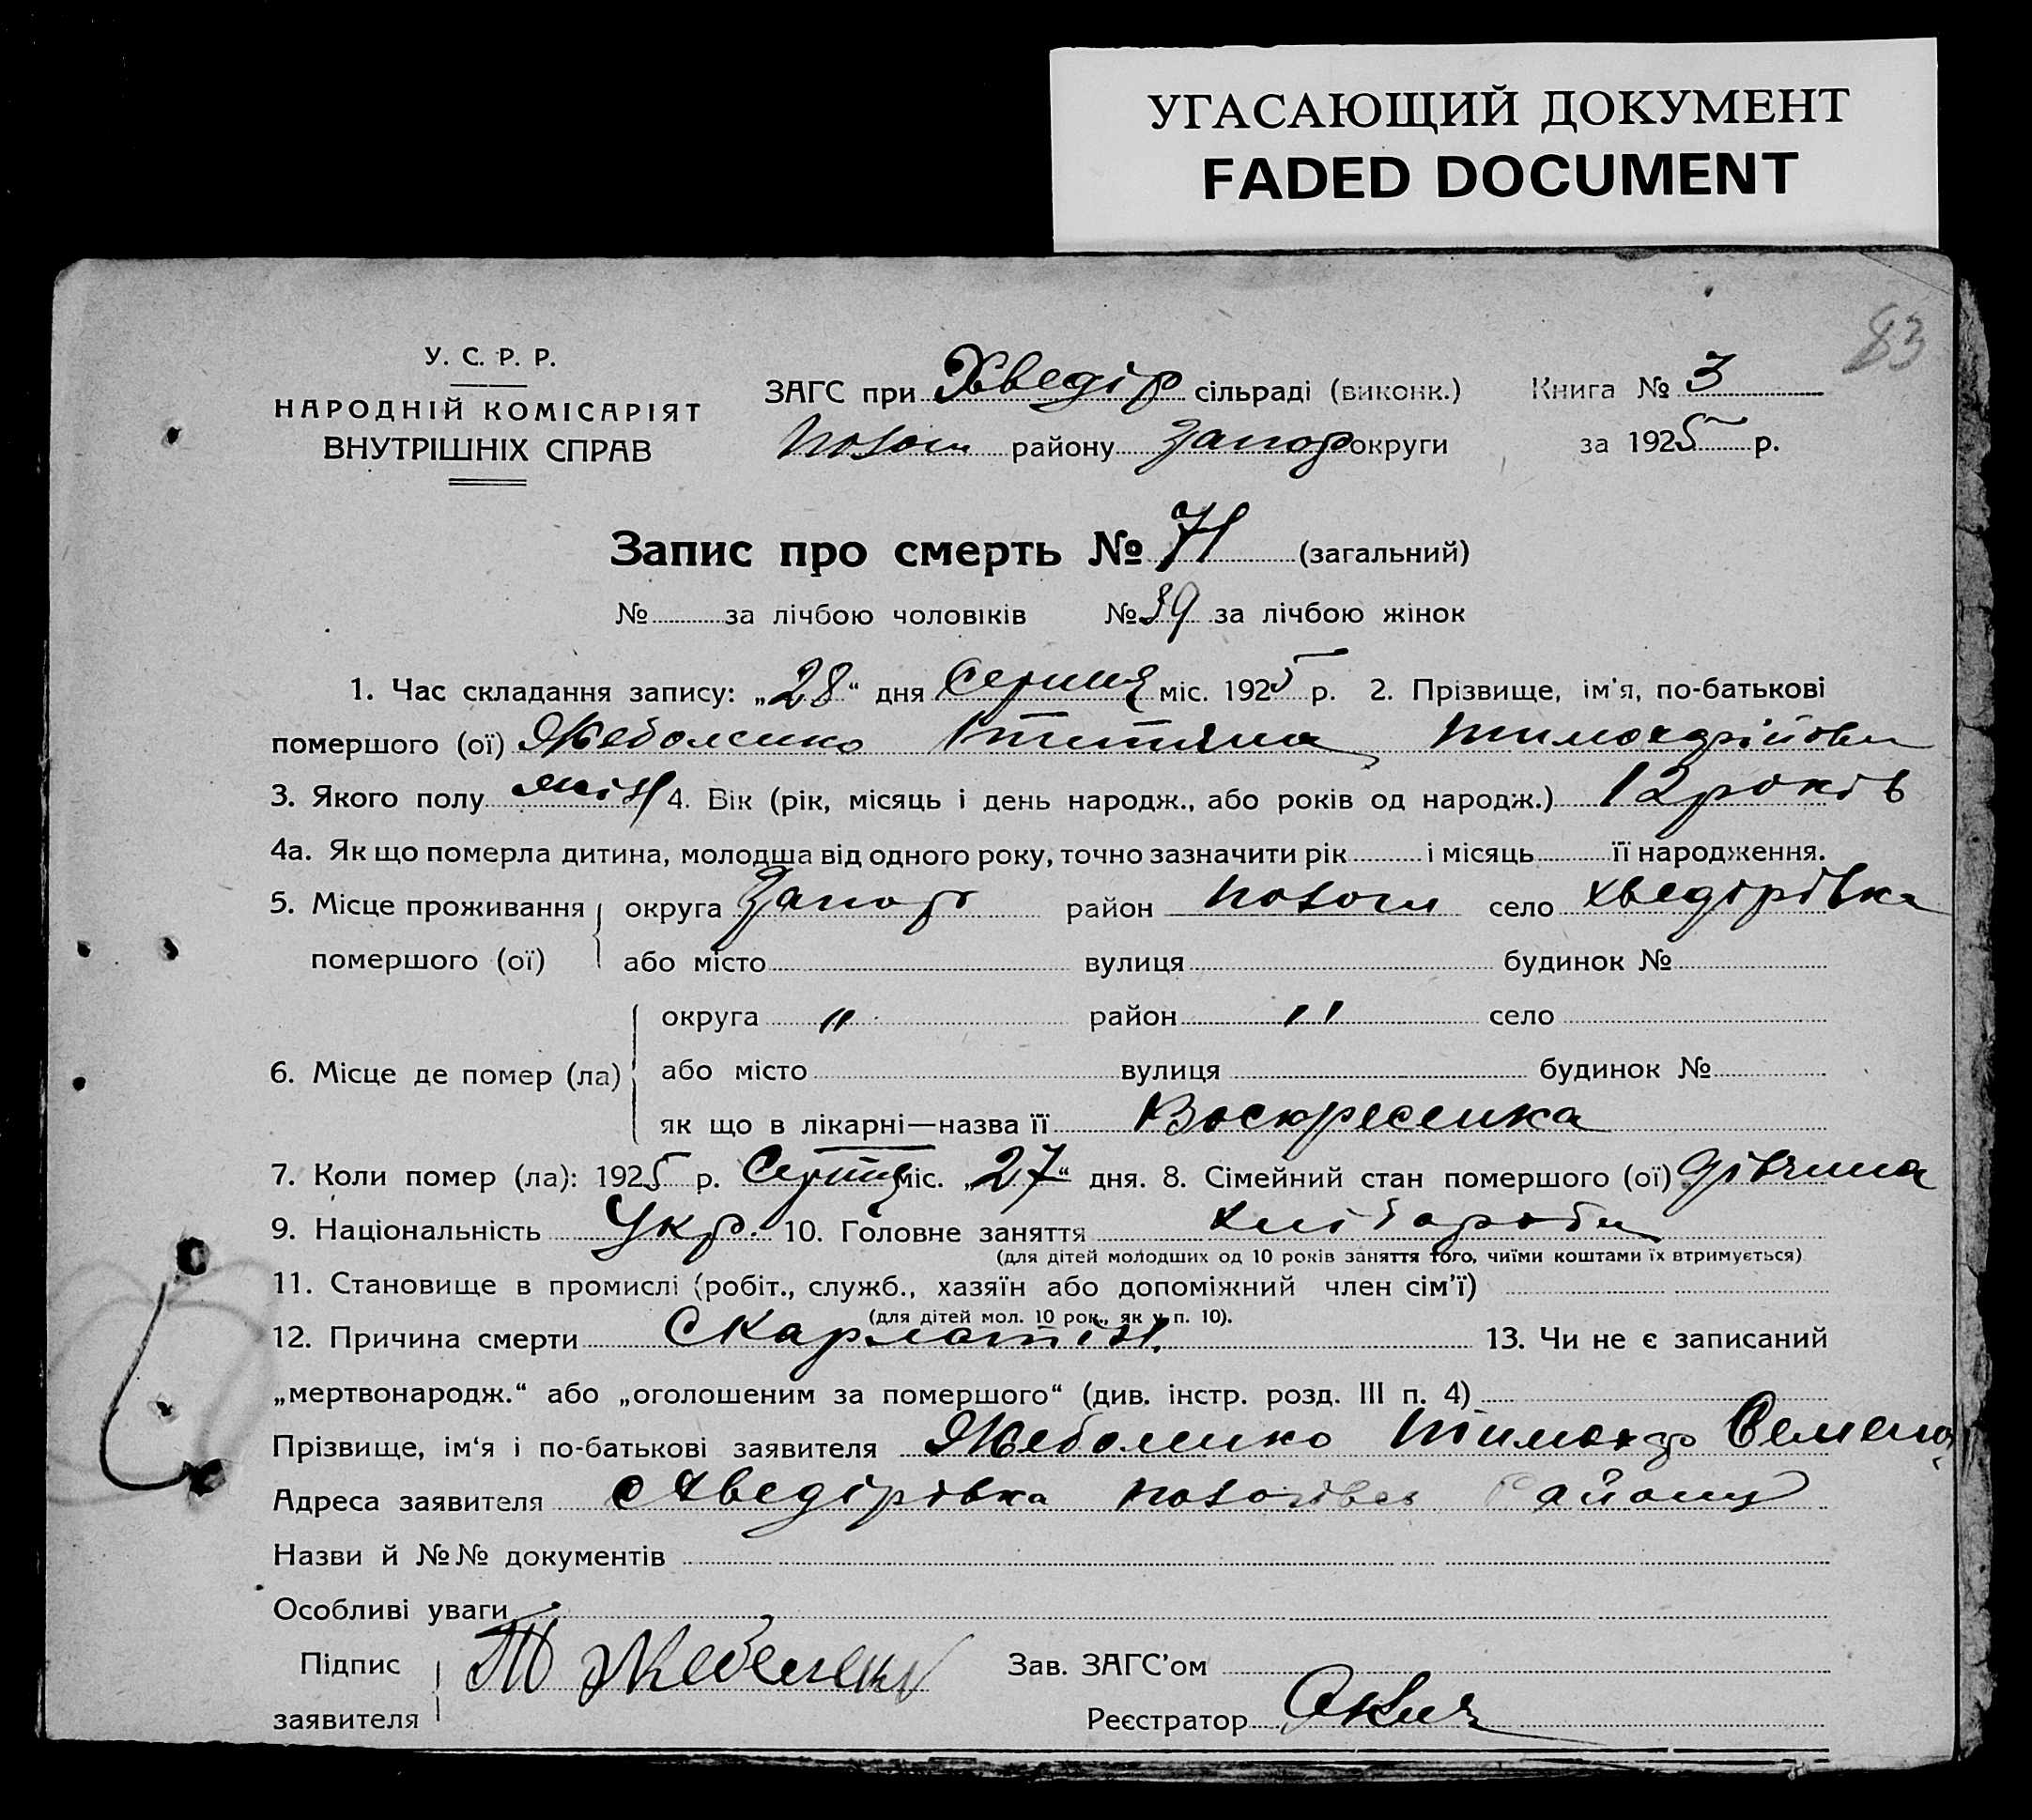 УГАСАЮЩИЙ ДОКУМЕНТ
FADED DOCUMENT
83
У. С. Р. Р.
НАРОДНІЙ КОМІСАРІЯТ
ВНУТРІШНІХ СПРАВ
ЗАГС при Хведір сільраді (виконк.)
Книга № 3
району Запор округи
за 1925 р.
Запис про смерть № 71 (загальний)
№ за лічбою чоловіків № 39 за лічбою жінок
1. Час складання запису: „28“ дня Серпня міс. 1925 р. 2. Прізвище, ім'я, по-батькові
помершого (ої)
3. Якого полу жін 4. Вік (рік, місяць і день народж., або років од народж.) 12 років
4а. Як що померла дитина, молодша від одного року, точно зазначити рік і місяць її народження.
5. Місце проживання округа Запор район село Хведірівка
помершого (ої) або місто вулиця будинок №
округа " район " село
6. Місце де помер (ла) або місто вулиця будинок №
як що в лікарні—назва її Воскресенка
7. Коли помер (ла): 1925 р. Серпня міс. „27“ дня. 8. Сімейний стан помершого (ої) дівчина
9. Національність Укр. 10. Головне заняття
(для дітей молодших од 10 років заняття того, чиїми коштами їх втримується)
11. Становище в промислі (робіт., служб., хазяїн або допоміжний член сім'ї)
(для дітей мол. 10 рок., як у п. 10).
12. Причина смерти Скарлатін. 13. Чи не є записаний
„мертвонародж.“ або „оголошеним за помершого“ (див. інстр. розд. III п. 4)
Прізвище, ім'я і по-батькові заявителя
Адреса заявителя с Хведірівка району
Назви й №№ документів
Особливі уваги
Підпис
заявителя
Зав. ЗАГС'ом
Реєстратор